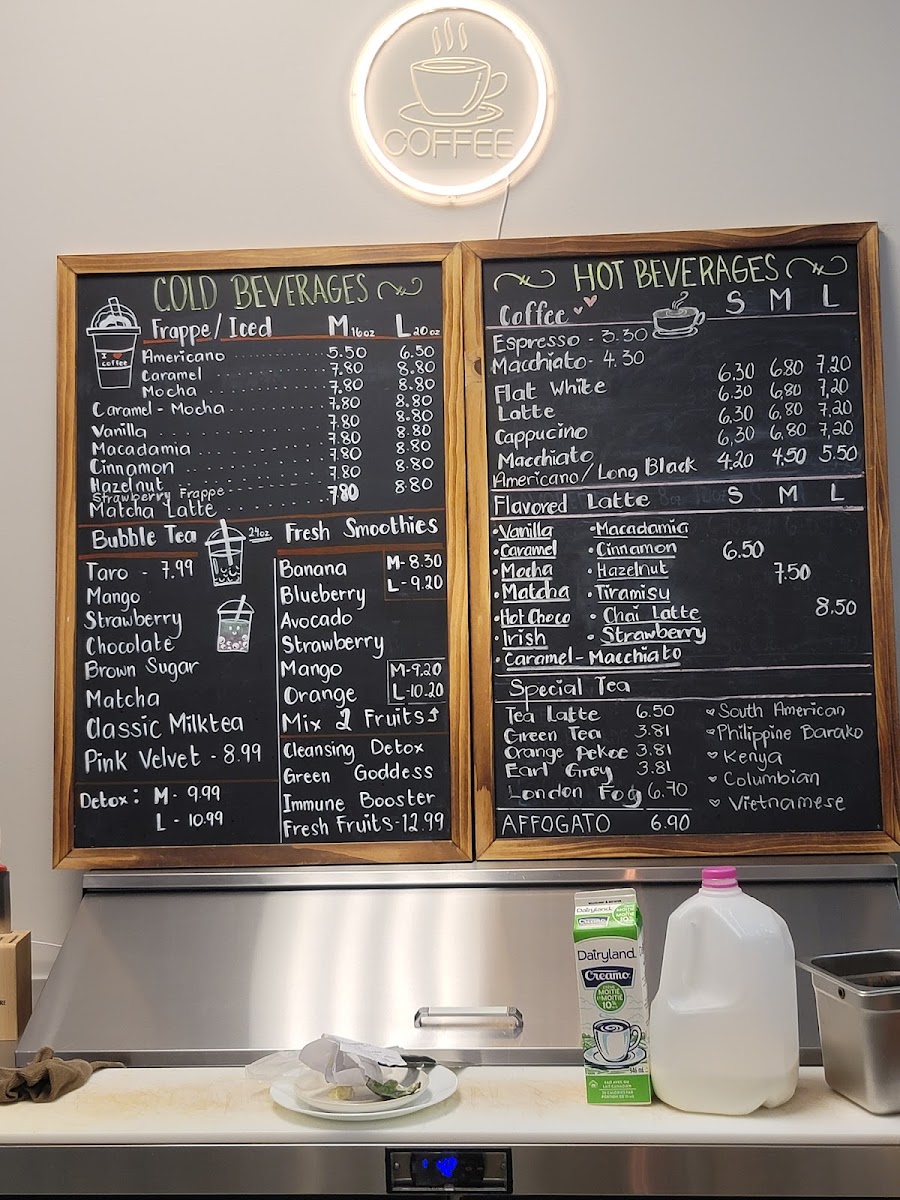 COFFEE
COLD BEVERAGES
Frappe/Iced M 16oz L 20oz
I ♥ coffee
Americano 5.50 6.50
Caramel 7.80 8.80
Mocha 7.80 8.80
Caramel - Mocha 7.80 8.80
Vanilla 7.80 8.80
Macadamia 7.80 8.80
Cinnamon 7.80 8.80
Hazelnut 7.80 8.80
Strawberry Frappe
Matcha Latte 7.80
Bubble Tea 24oz
Taro - 7.99
Mango
Strawberry
Chocolate
Brown Sugar
Matcha
Classic Milktea
Pink Velvet - 8.99
Detox: M - 9.99
L - 10.99
Fresh Smoothies
Banana M - 8.30
Blueberry L - 9.20
Avocado
Strawberry
Mango M - 9.20
Orange L - 10.20
Mix 2 Fruits
Cleansing Detox
Green Goddess
Immune Booster
Fresh Fruits - 12.99
HOT BEVERAGES
Coffee S M L
Espresso - 3.30
Macchiato - 4.30
Flat White 6.30 6.80 7.20
Latte 6.30 6,80 7,20
Cappucino 6.30 6.80 7.20
Macchiato 6,30 6.80 7,20
Americano/Long Black 4.20 4.50 5.50
Flavored Latte S M L
• Vanilla • Macadamia
• Caramel • Cinnamon 6.50
• Mocha • Hazelnut 7.50
• Matcha • Tiramisu
• Hot Choco • Chai Latte 8.50
• Irish • Strawberry
• Caramel - Macchiato
Special Tea
Tea Latte 6.50
Green Tea 3.81
Orange Pekoe 3.81
Earl Grey 3.81
London Fog 6.70
South American
Philippine Barako
Kenya
Columbian
Vietnamese
AFFOGATO 6.90
Dairyland
Creamo
Dairyland
Creamo
MOITIÉ
MOITIÉ
10%
946 mL